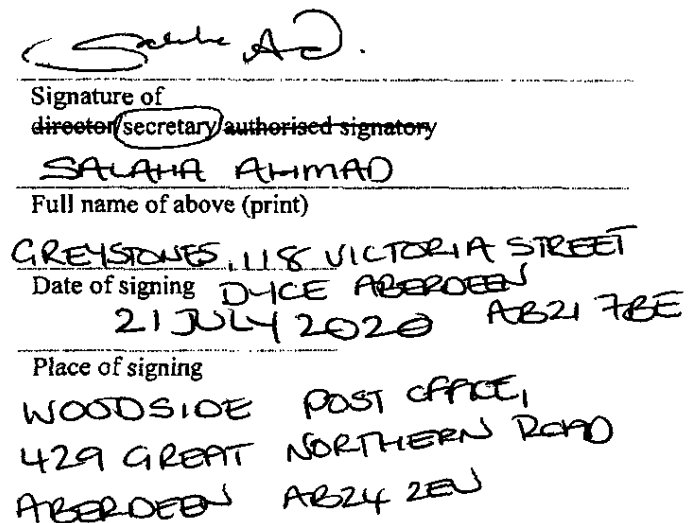 Signature of
director/secretary/authorised signatory
SALAHA AHMAD
Full name of above (print)
GREYSTONES, 118 VICTORIA STREET
Date of signing DYCE ABERDEEN
21 JULY 2020 AB21 7BE
Place of signing
WOODSIDE POST OFFICE,
429 GREAT NORTHERN ROAD
ABERDEEN AB24 2EU